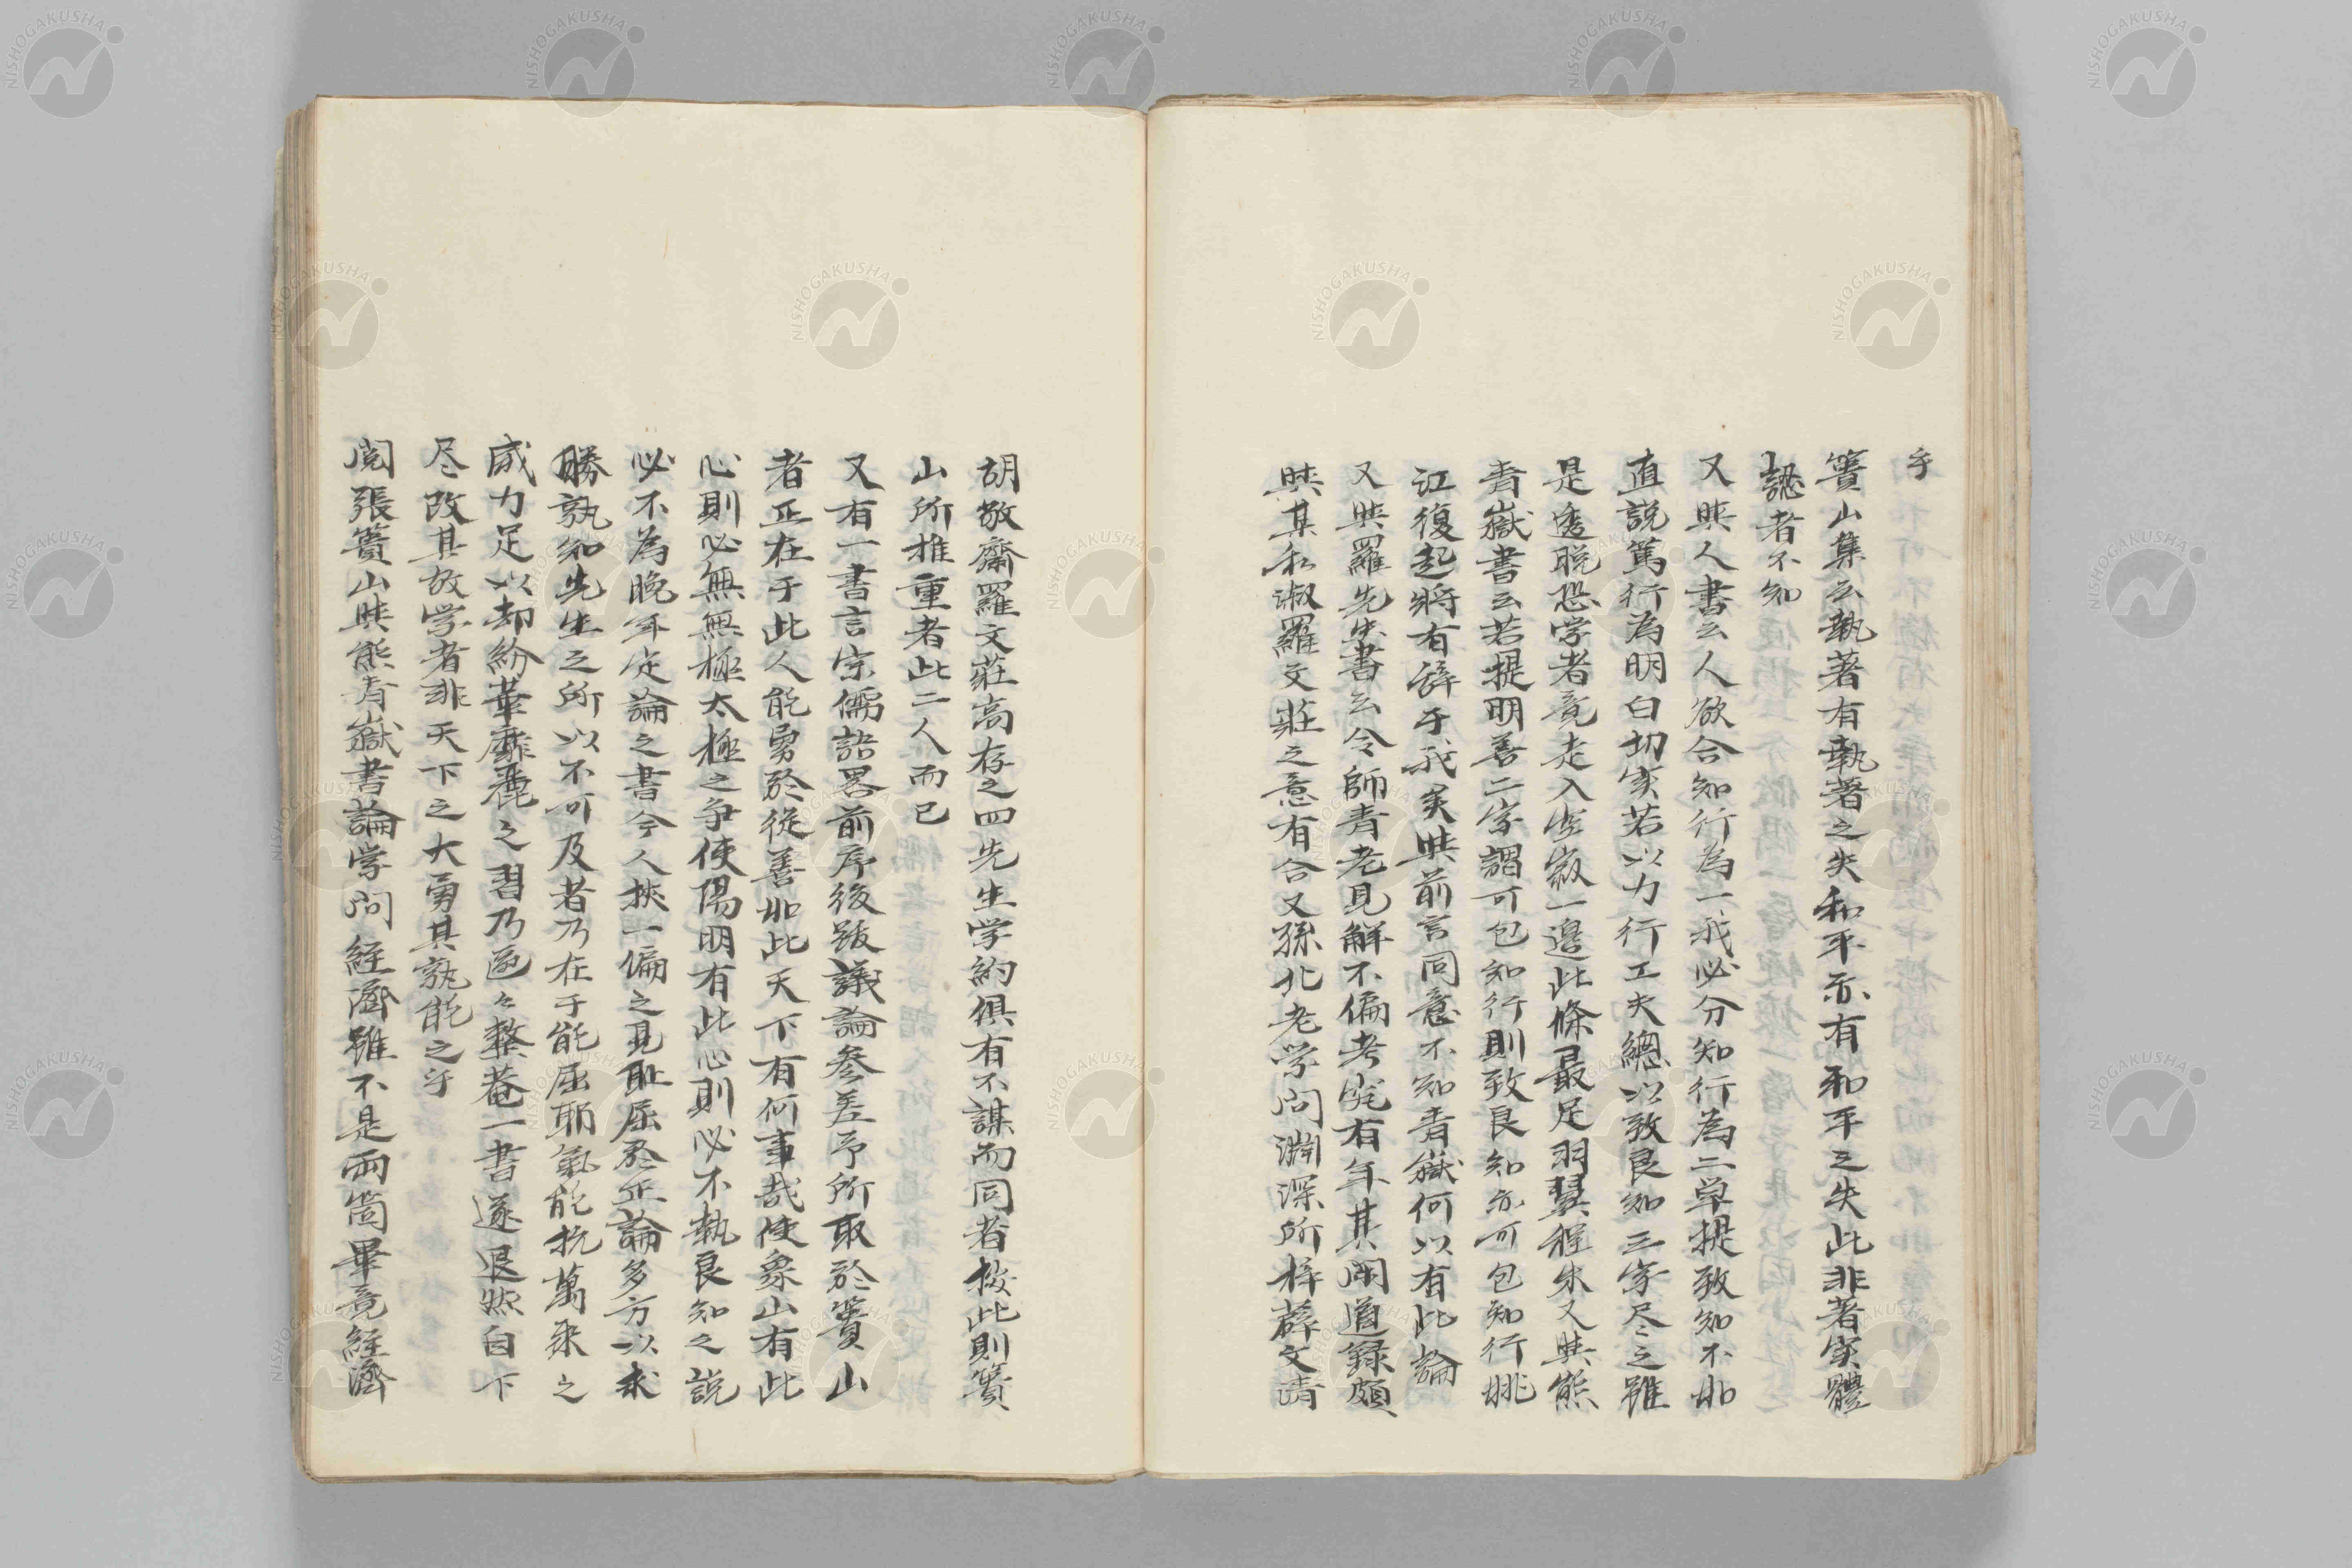 乎
簣山集云執著有執著之失和平亦有和平之失此非著実體
認者不知
又與人書云人欲合知行為一我必分知行為二单提致知不如
直説篤行為明白切実若以力行工夫總以致良知三字尽之雖
是透脱恐学者竟走入空寂一邊此條最足羽翼程朱又與熊
青嶽書云若提明善二字謂可包知行則致良知亦可包知行姚
江復起將有辞于我矣與前言同意不知青嶽何以有此論
又與羅先生書云令師青老見解不偏考究有年其閑道録頗
與其私淑羅文莊之意有合又孫北老学問淵深所梓薛文清
胡敬齋羅文莊高存之四先生学約俱有不謀而同者按此則簣
山所推重者此二人而已
又有一書言宗儒語畧前序後跋議論參差予所取於簣山
者正在于此人能勇於從善如此天下有何事哉使象山有此
心則必無無極太極之争使陽明有此心則必不執良知之説
必不為晚年定論之書今人挾一偏之見耻屈於正論多方以求
勝孰知先生之所以不可及者乃在于能屈耶氣能抗萬乘之
威力足以却紛華靡麗之習乃区々整菴一書遂退然自下
尽改其故学者非天下之大勇其孰能之乎
閲張簣山與熊青嶽書論学問經濟雖不是両箇畢竟經濟
NISHOGAKUSHA